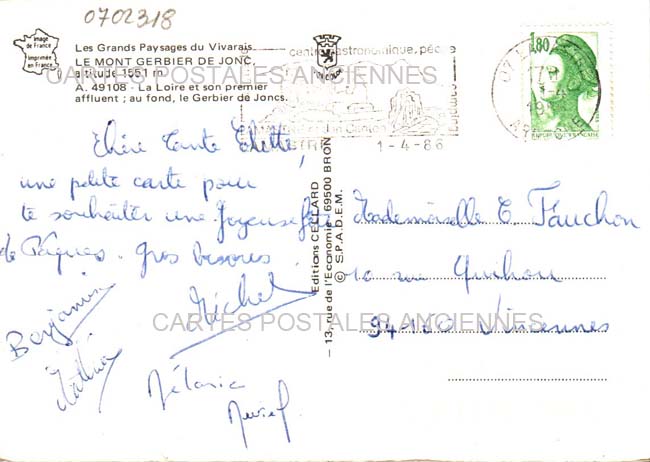 0702318
Image
de France
Imprimée
en France
Les Grands Paysages du Vivarais
LE MONT GERBIER DE JONC
altitude 1551 m
A. 49108 - La Loire et son premier
affluent ; au fond, le Gerbier de Joncs.
centre gastronomique, pêche
camping
1-4-86
1,80
CARTES POSTALES ANCIENNES
Chère Tante
une petite carte pour
te souhaiter une Joyeuse fête
de Pâques. Gros baisers.
Michel
Benjamin
Mélanie
Muriel
Editions CELLARD
- 13, rue de l'Economie 69500 BRON
© S.P.A.D.E.M.
Mademoiselle C. Fauchon
10 rue Quihou
94160 Vincennes
CARTES POSTALES ANCIENNES